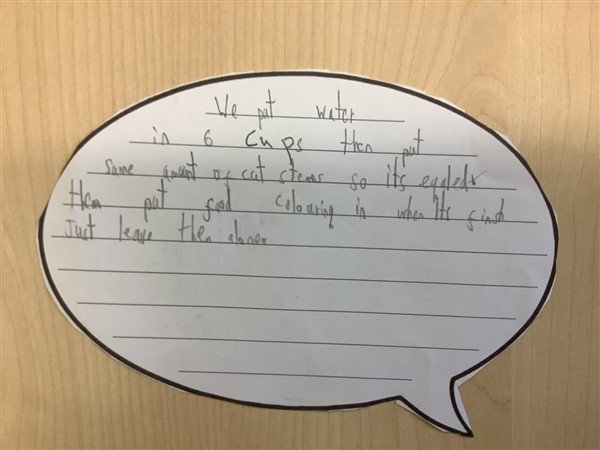 We put water
in 6 cups then put
same amount of cut stems so its
them put food colouring in when its
Just leave them alone.